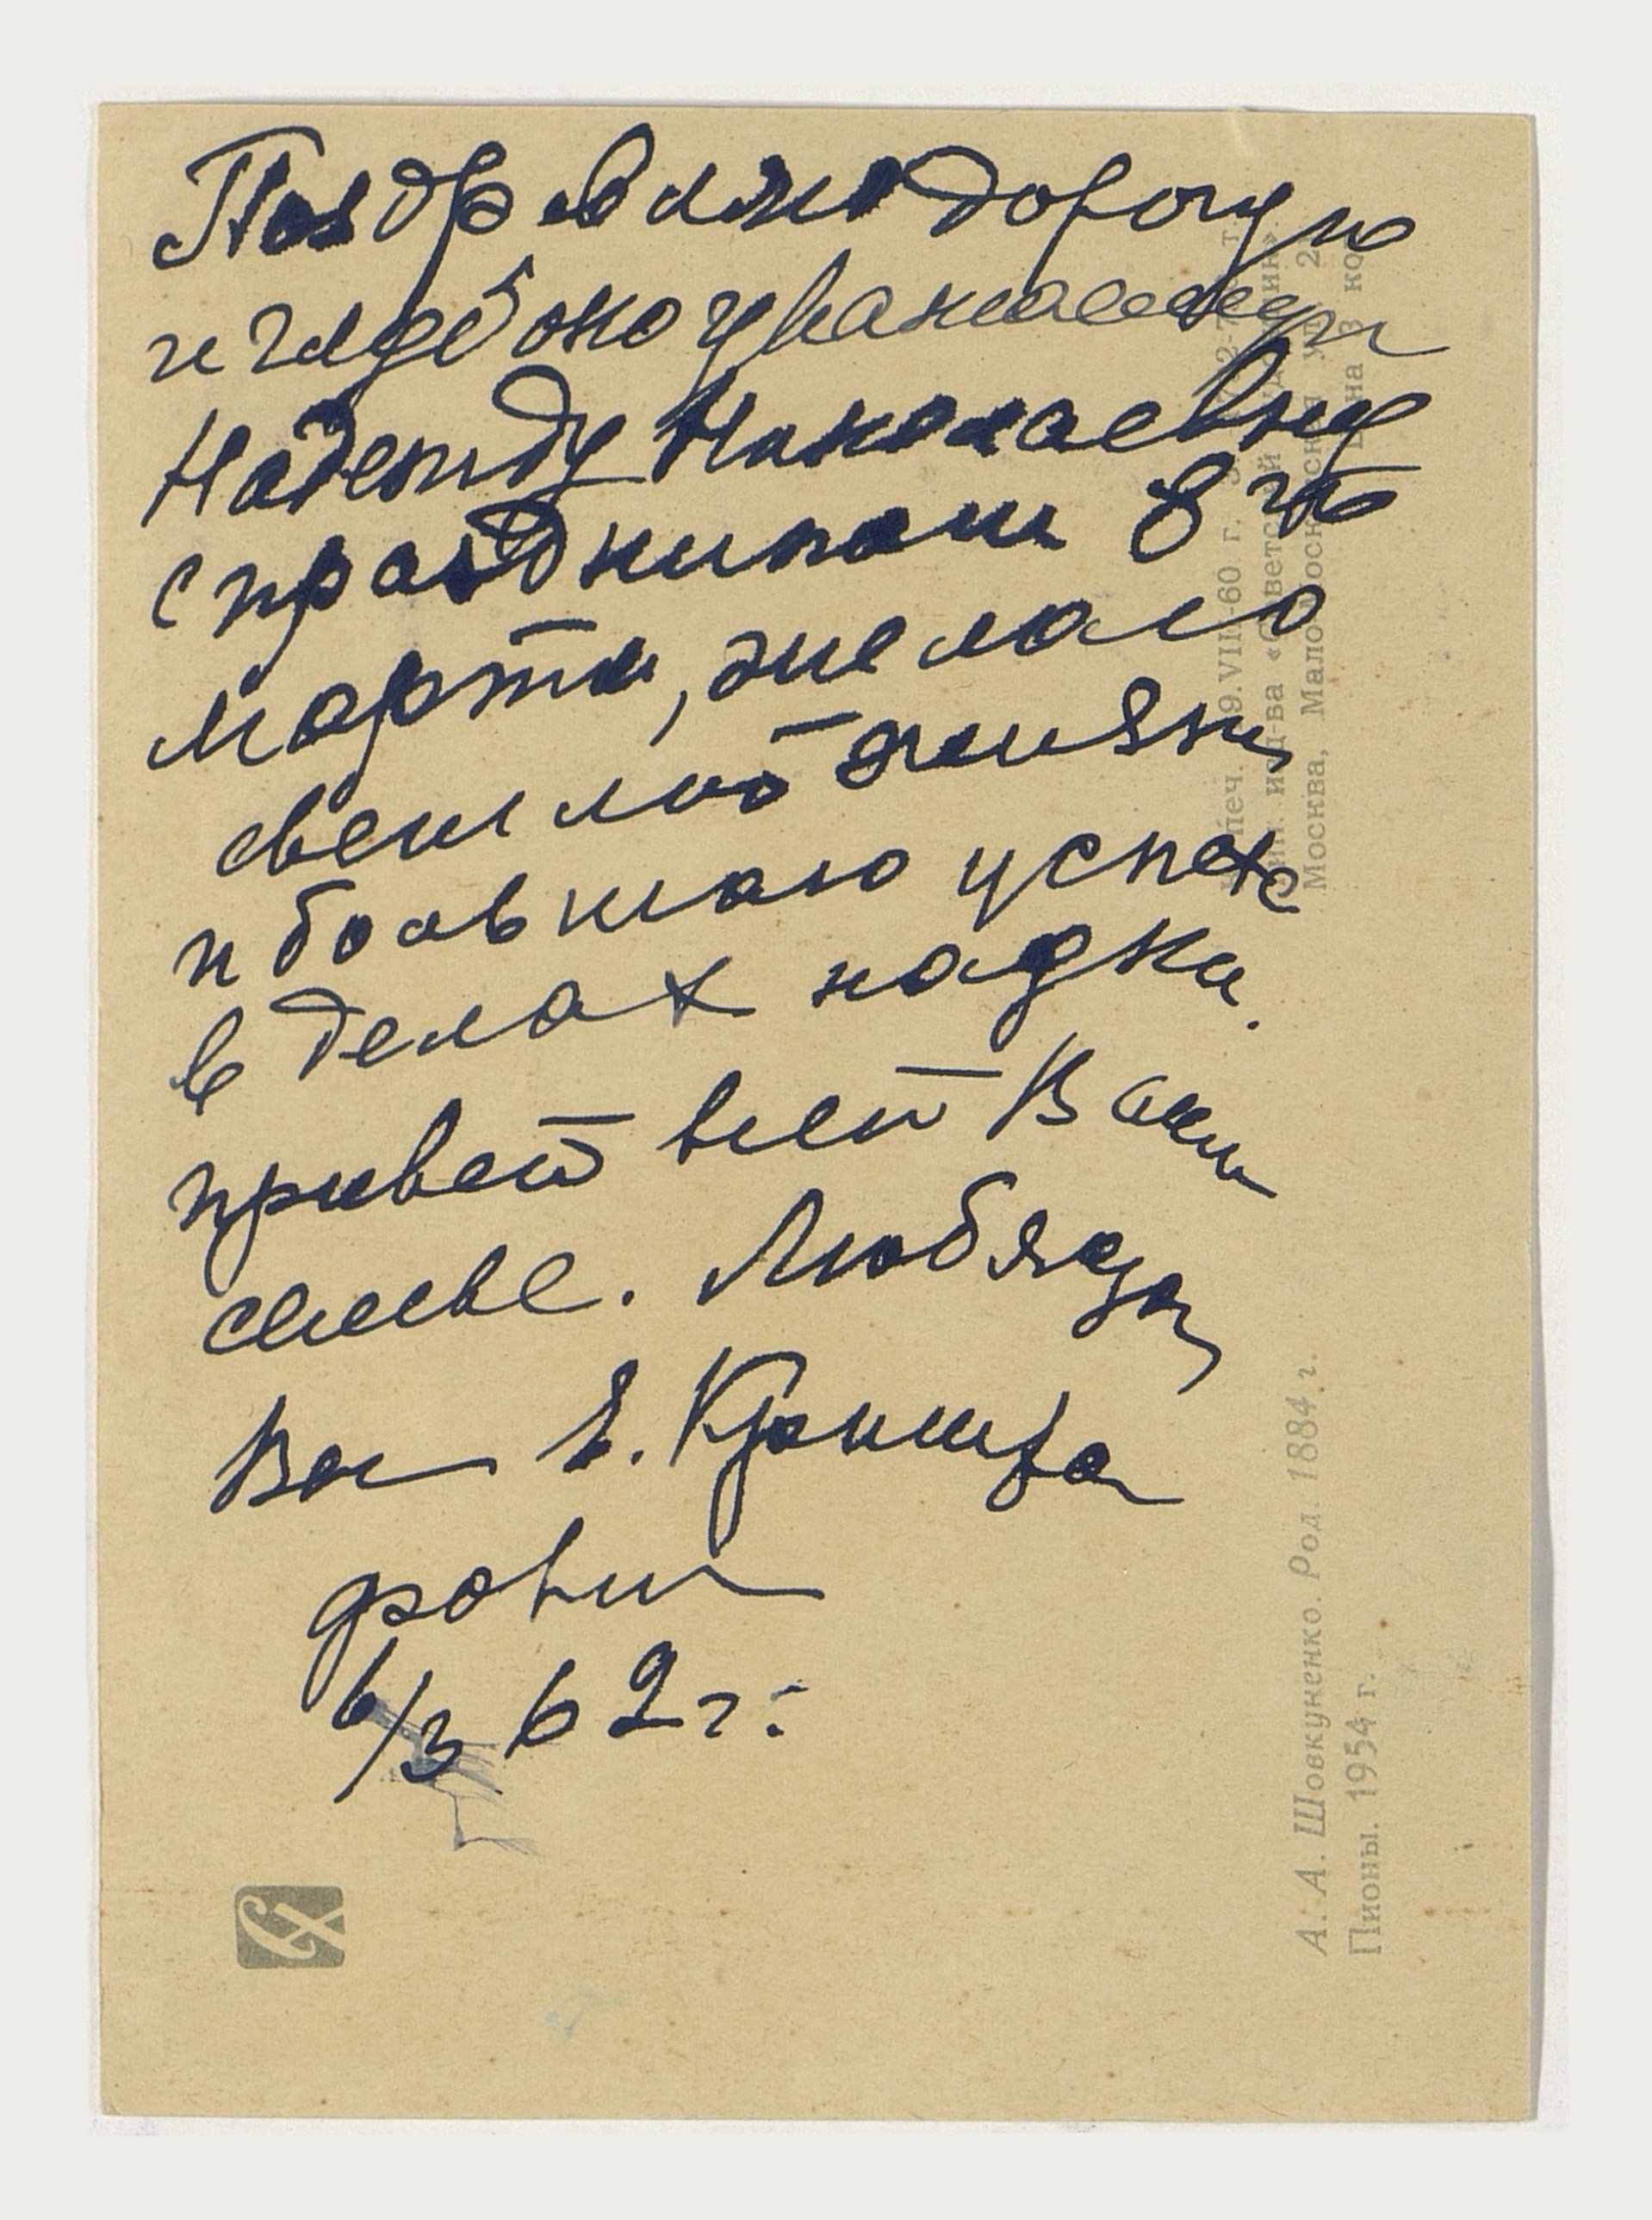 Поздравляю дорогую
и глубокоуважаемую
Надежду Николаевну
с праздником 8 го
марта, желаю
светлой жизни
и большого успеха
в делах науки.
привет всей Вашей
семье. Любящая
Вас Е. Кришта
фович
6/3 62 г.
А. А. Шовкуненко. Род. 1884 г.
Пионы. 1954 г.
печ. 9.VIII-60 г.
изд-ва «Советский художник».
Москва, Мало-Московская ул.